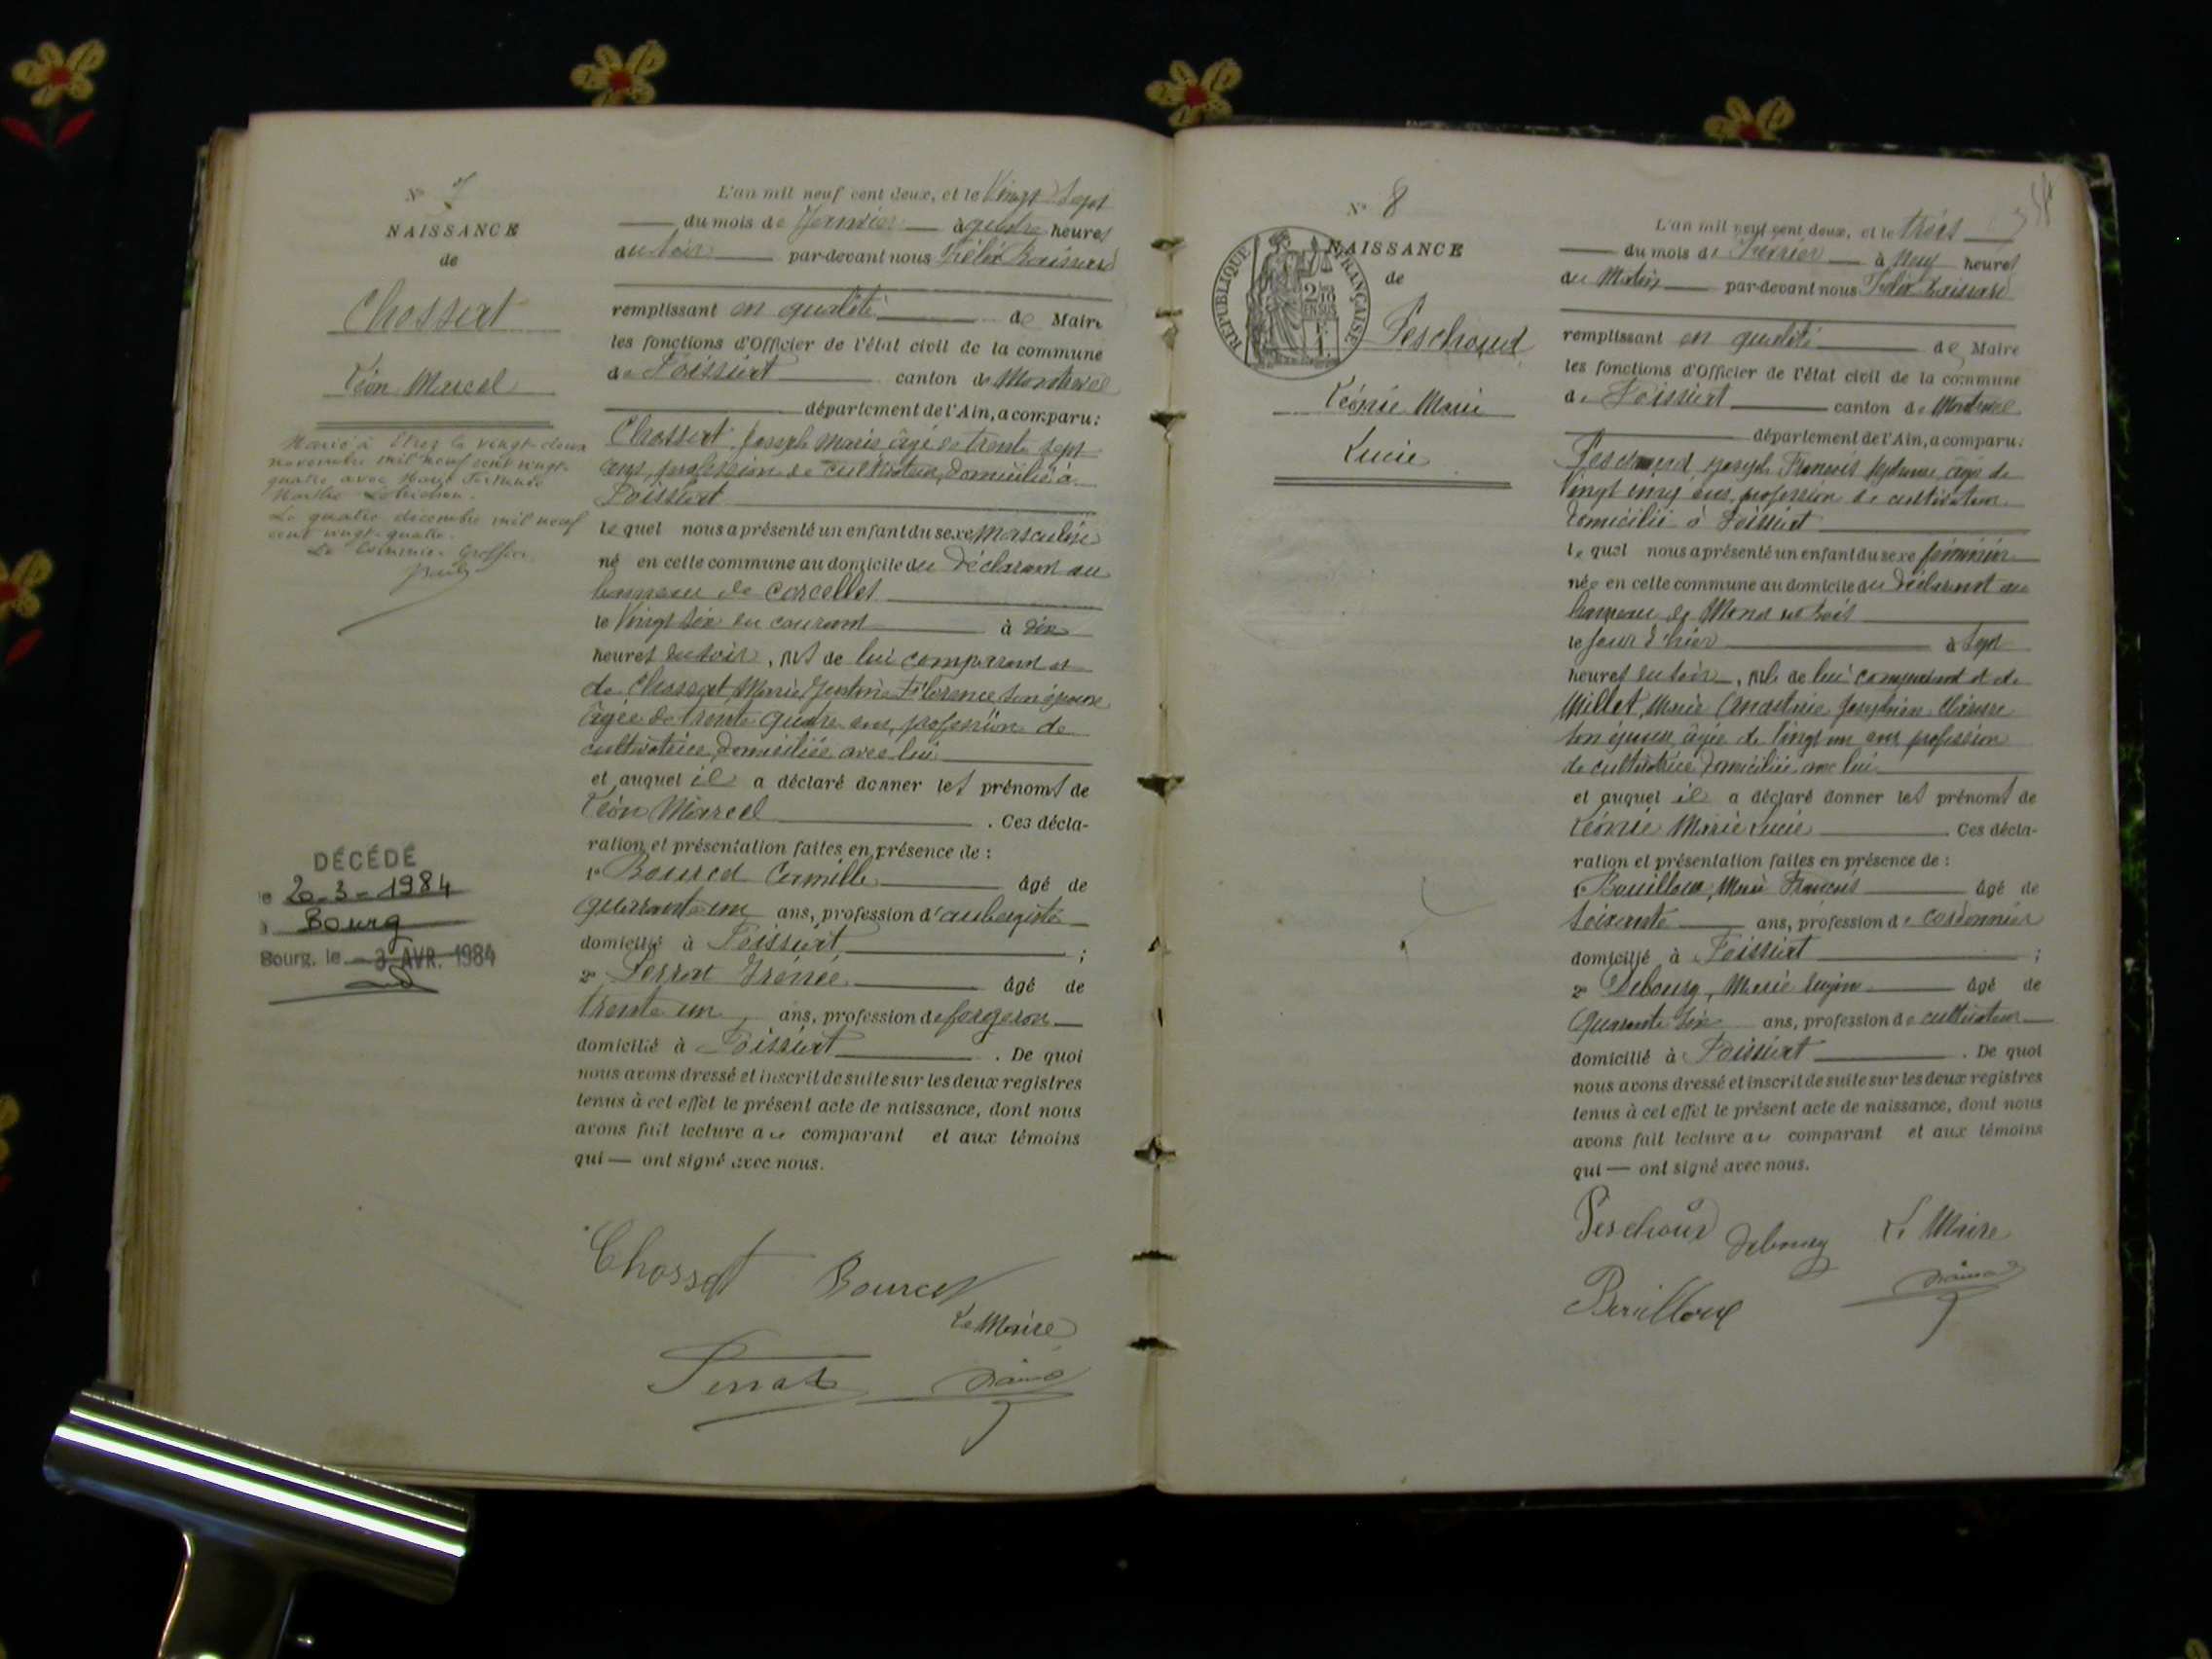 N° 7
NAISSANCE
de
Chossat
Léon Marcel
Marié à Etrez le vingt-deux
novembre mil neuf cent vingt-
quatre avec Marie
Marthe
Le quatre décembre mil neuf
cent vingt-quatre.
Le Commis-Greffier
DÉCÉDÉ
le 20-3-1984
à Bourg
Bourg, le - 3 AVR. 1984
L'an mil neuf cent deux, et le Vingt Sept
du mois de Janvier à quatre heures
du soir par-devant nous Félix
remplissant en qualité de Maire
les fonctions d'Officier de l'état civil de la commune
de Foissiat canton de Montrevel
département de l'Ain, a comparu:
Chossat Joseph Marie âgé de trente sept
ans, profession de cultivateur, domicilié à
Foissiat
le quel nous a présenté un enfant du sexe Masculin
né en cette commune au domicile du Déclarant au
hameau de Corcelles
le Vingt Six du courant à dix
heures du soir, fils de lui comparant et
de Chossat Marie Florence son épouse
âgée de trente quatre ans, profession de
cultivatrice, domiciliée avec lui
et auquel il a déclaré donner les prénoms de
Léon Marcel . Ces décla-
ration et présentation faites en présence de :
1° Bourcet Camille âgé de
quarante un ans, profession d'aubergiste
domicilié à Foissiat ;
2° Perrat Irénée âgé de
trente un ans, profession de forgeron
domicilié à Foissiat . De quoi
nous avons dressé et inscrit de suite sur les deux registres
tenus à cet effet le présent acte de naissance, dont nous
avons fait lecture au comparant et aux témoins
qui — ont signé avec nous.
Chossat Bourcet
Le Maire
Perrat
N° 8
NAISSANCE
de
RÉPUBLIQUE FRANÇAISE
2/10 EN SUS
Peschoud
Léonie Marie
Lucie
L'an mil neuf cent deux, et le trois
du mois de Février à neuf heures
du Matin par-devant nous Félix
remplissant en qualité de Maire
les fonctions d'Officier de l'état civil de la commune
de Foissiat canton de Montrevel
département de l'Ain, a comparu:
Peschoud Joseph François âgé de
Vingt cinq ans, profession de cultivateur
domicilié à Foissiat
le quel nous a présenté un enfant du sexe féminin
née en cette commune au domicile du déclarant au
hameau de
le jour d'hier à Sept
heures du soir, fille de lui comparant et de
Millet, Marie Anastasie Joséphine
son épouse, âgée de Vingt un ans, profession
de cultivatrice domiciliée avec lui
et auquel il a déclaré donner les prénoms de
Léonie Marie Lucie Ces décla-
ration et présentation faites en présence de :
1° Bouilloux, Marie François âgé de
Soixante ans, profession de cordonnier
domicilié à Foissiat ;
2° Debourg, Marie Eugène âgé de
Quarante Six ans, profession de cultivateur
domicilié à Foissiat . De quoi
nous avons dressé et inscrit de suite sur les deux registres
tenus à cet effet le présent acte de naissance, dont nous
avons fait lecture au comparant et aux témoins
qui — ont signé avec nous.
Peschoud Debourg Le Maire
Bouilloux